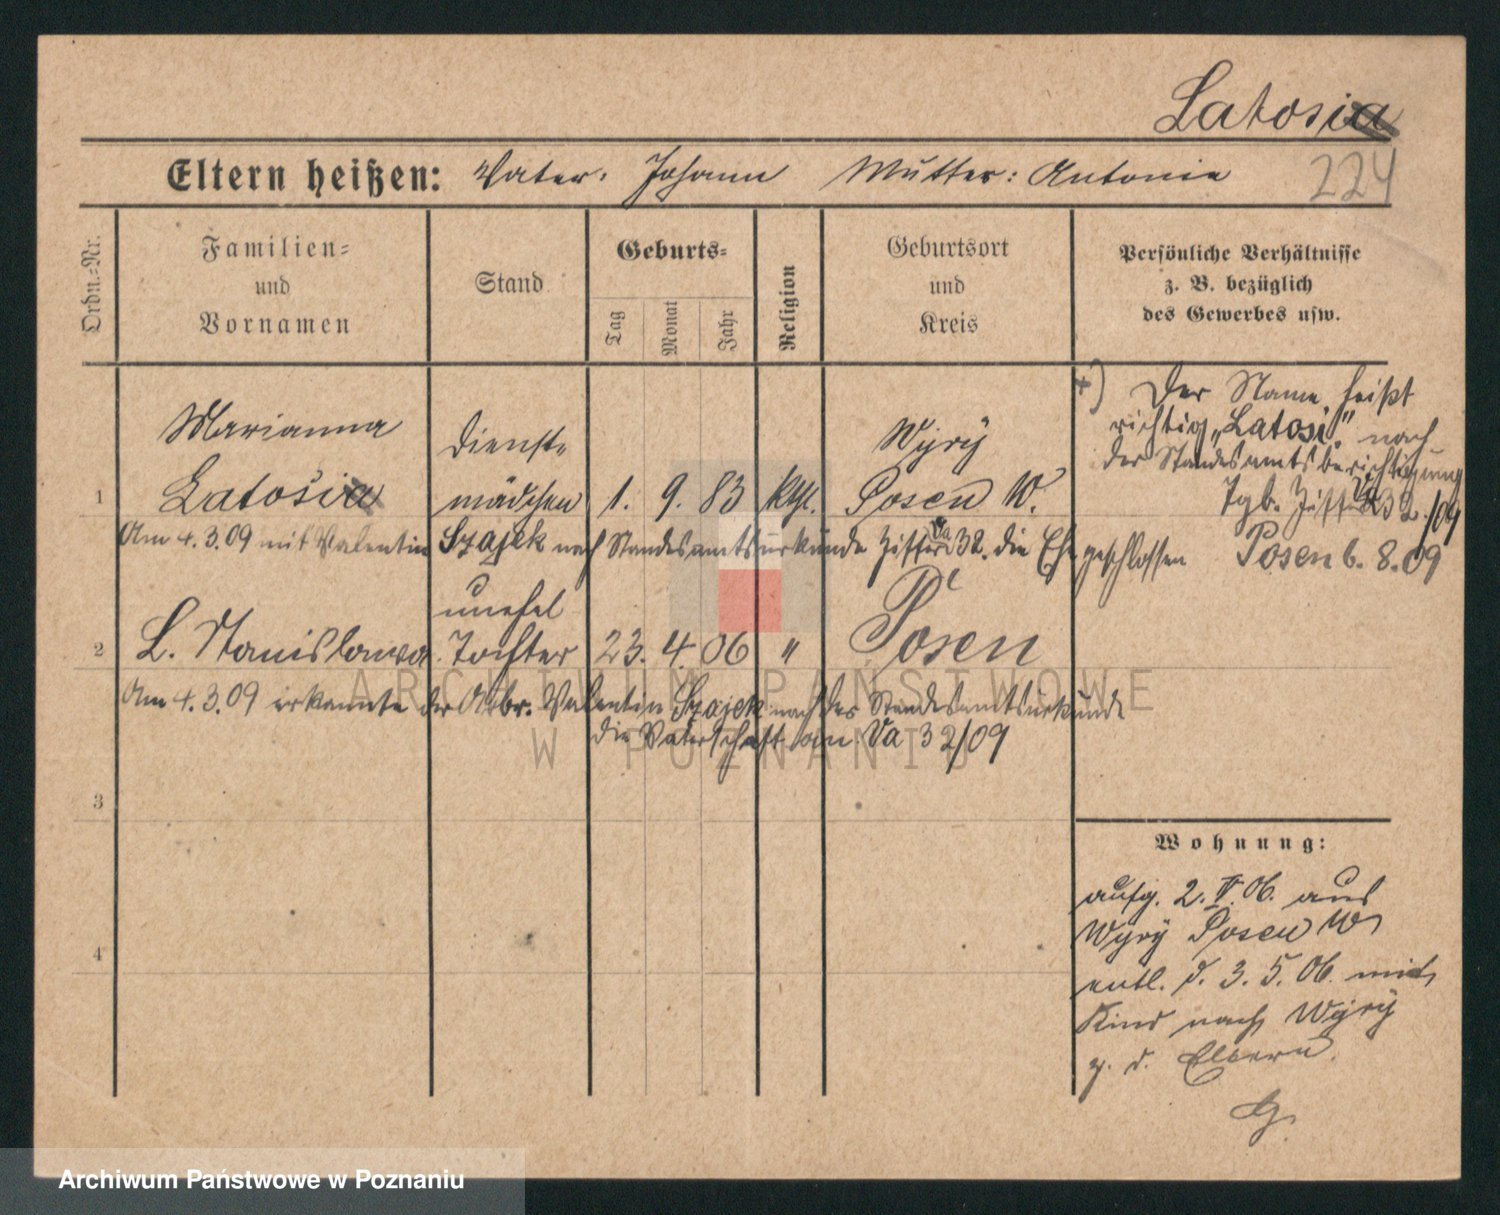 Latosia
Eltern heißen: Vater: Johann Mutter: Antonie 224
Ordn.-Nr.
Familien-
und
Vornamen
Stand
Geburts-
Tag
Monat
Jahr
Religion
Geburtsort
und
Kreis
Persönliche Verhältnisse
z. B. bezüglich
des Gewerbes usw.
+) Der Name heißt
richtig „Latosi" nach
der Standesamtsberichtigung
Tgb. Ziffer 32/09
Posen 6. 8. 09
Marianna Dienst- Wyry
1 Latośia mädchen 1. 9. 83 kth. Posen W.
Am 4.3.09 mit Valentin Szajek nach Standesamtsurkunde Ziffer Va 32. die Ehe geschlossen
unehel
2 L. Stanislawa Tochter 23. 4. 06 " Posen
Am 4.3.09 erkannte der Arbr. Valentin Szajek nach der Standesamtsurkunde
die Vaterschaft an Va 32/09
3
4
Wohnung:
aufg. 2. 5. 06. aus
Wyry Posen W
entl. d. 3. 5. 06. mit
Kind nach Wyry
z. d. Eltern.
ARCHIWUM PAŃSTWOWE
W POZNANIU
Archiwum Państwowe w Poznaniu